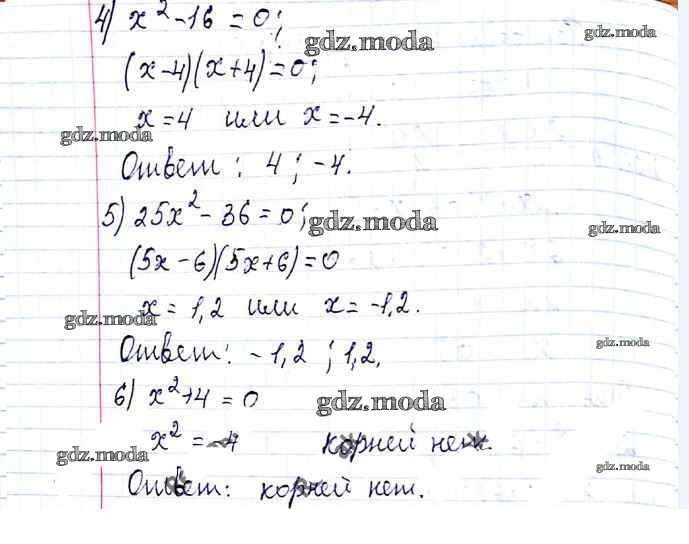 4) x² - 16 = 0;
gdz.moda
gdz.moda
(x-4)(x+4)=0;
x=4 или x=-4.
gdz.moda
Ответ: 4; -4.
5) 25x² - 36 = 0;
gdz.moda
gdz.moda
(5x-6)(5x+6)=0
x = 1,2 или x = -1,2.
gdz.moda
Ответ: -1,2; 1,2.
gdz.moda
6) x²+4 = 0
gdz.moda
x² = -4 корней нет.
gdz.moda
gdz.moda
Ответ: корней нет.